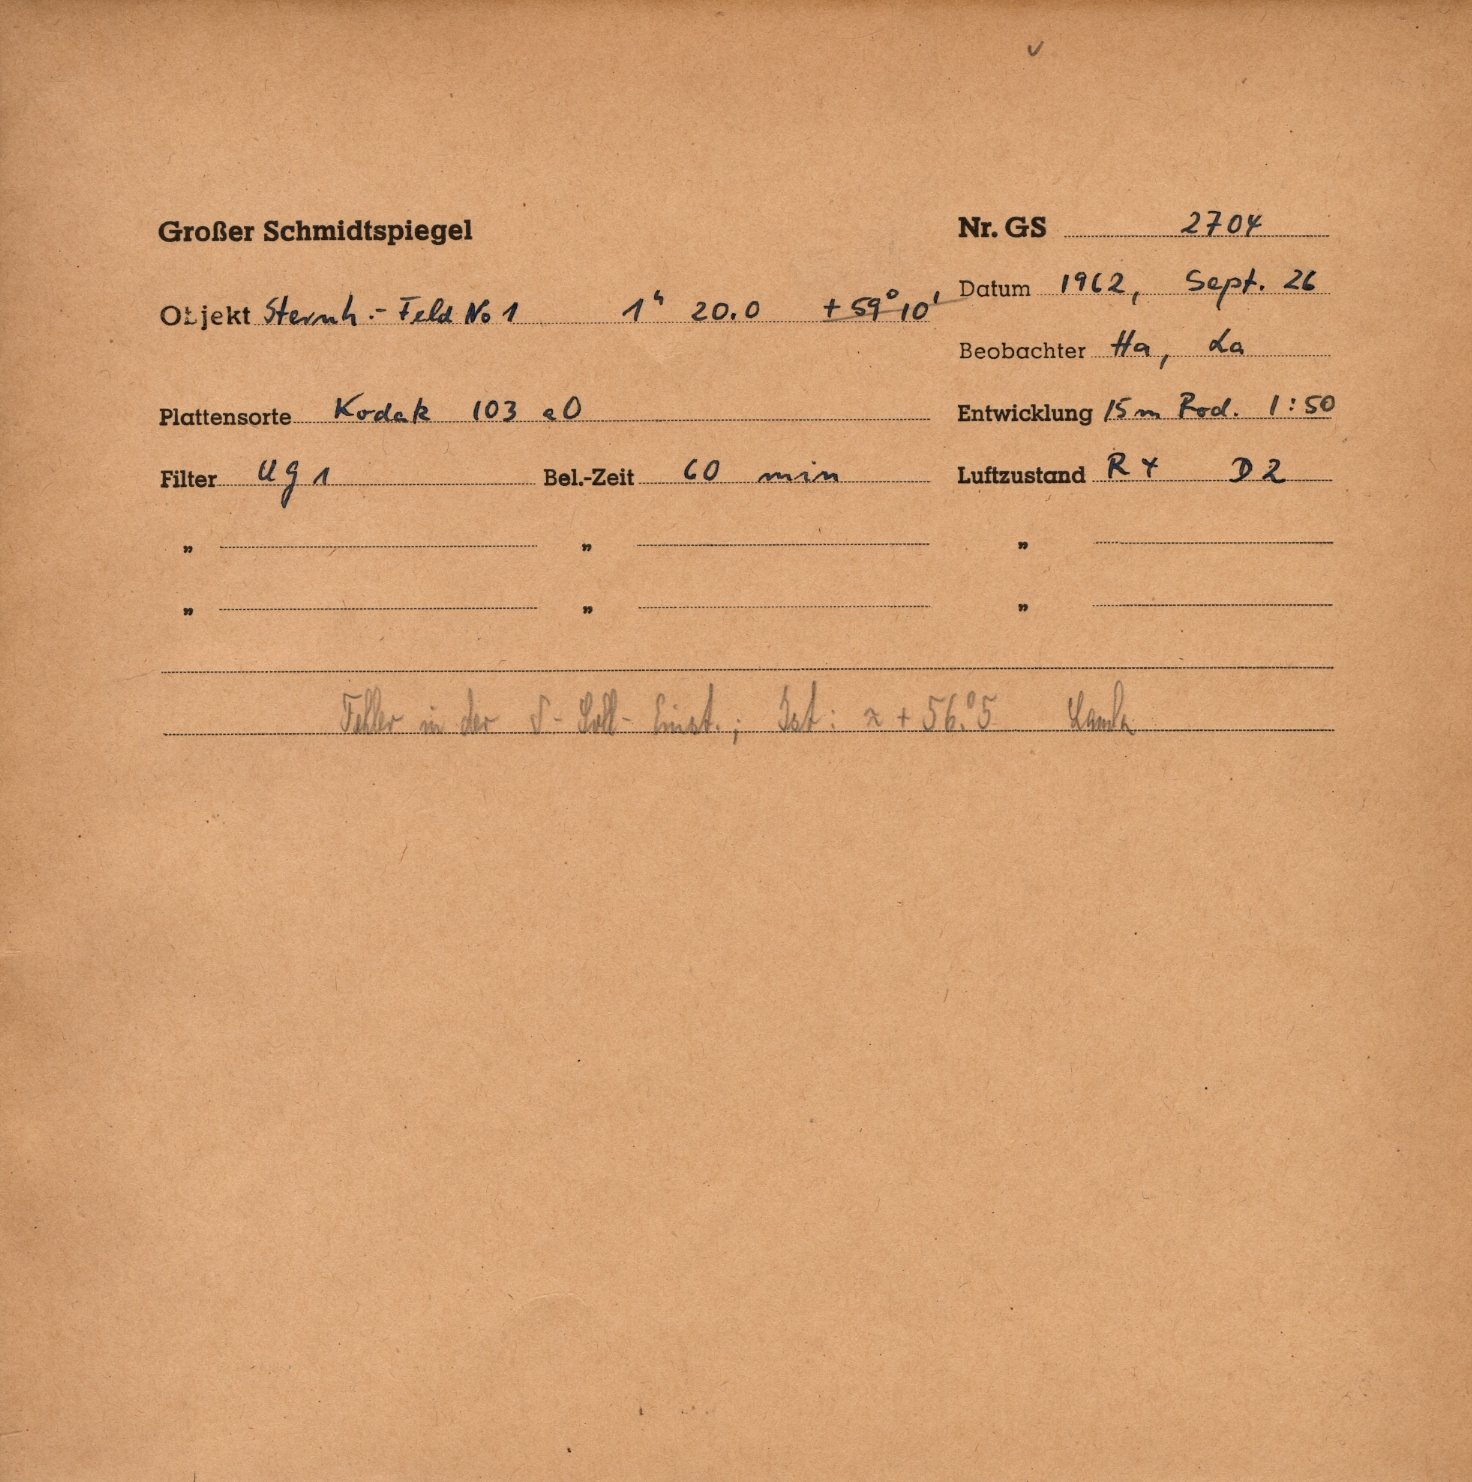 Großer Schmidtspiegel Nr. GS 2704
Objekt Sternh.-Feld No 1 1h 20.0 + 59° 10' Datum 1962, Sept. 26
Beobachter Ha, La
Plattensorte Kodak 103 aO Entwicklung 15m Rod. 1:50
Filter UG 1 Bel.-Zeit 60 min Luftzustand R 4 D 2
" " "
" " "
Fehler in der δ-Soll-Einst.; Ist: ≈ + 56.°5